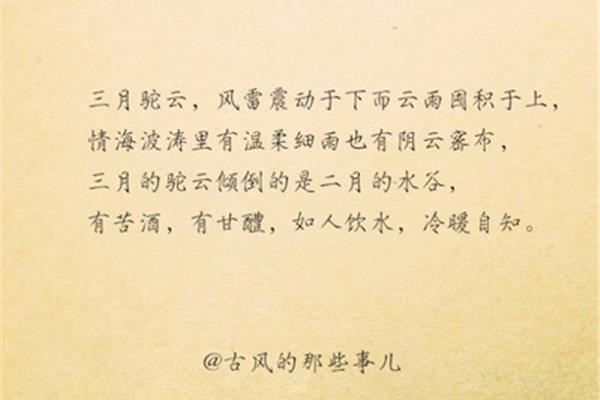 三月驼云，风雷震动于下而云雨囤积于上，
情海波涛里有温柔细雨也有阴云密布，
三月的驼云倾倒的是二月的水谷，
有苦酒，有甘醴，如人饮水，冷暖自知。
@古风的那些事儿